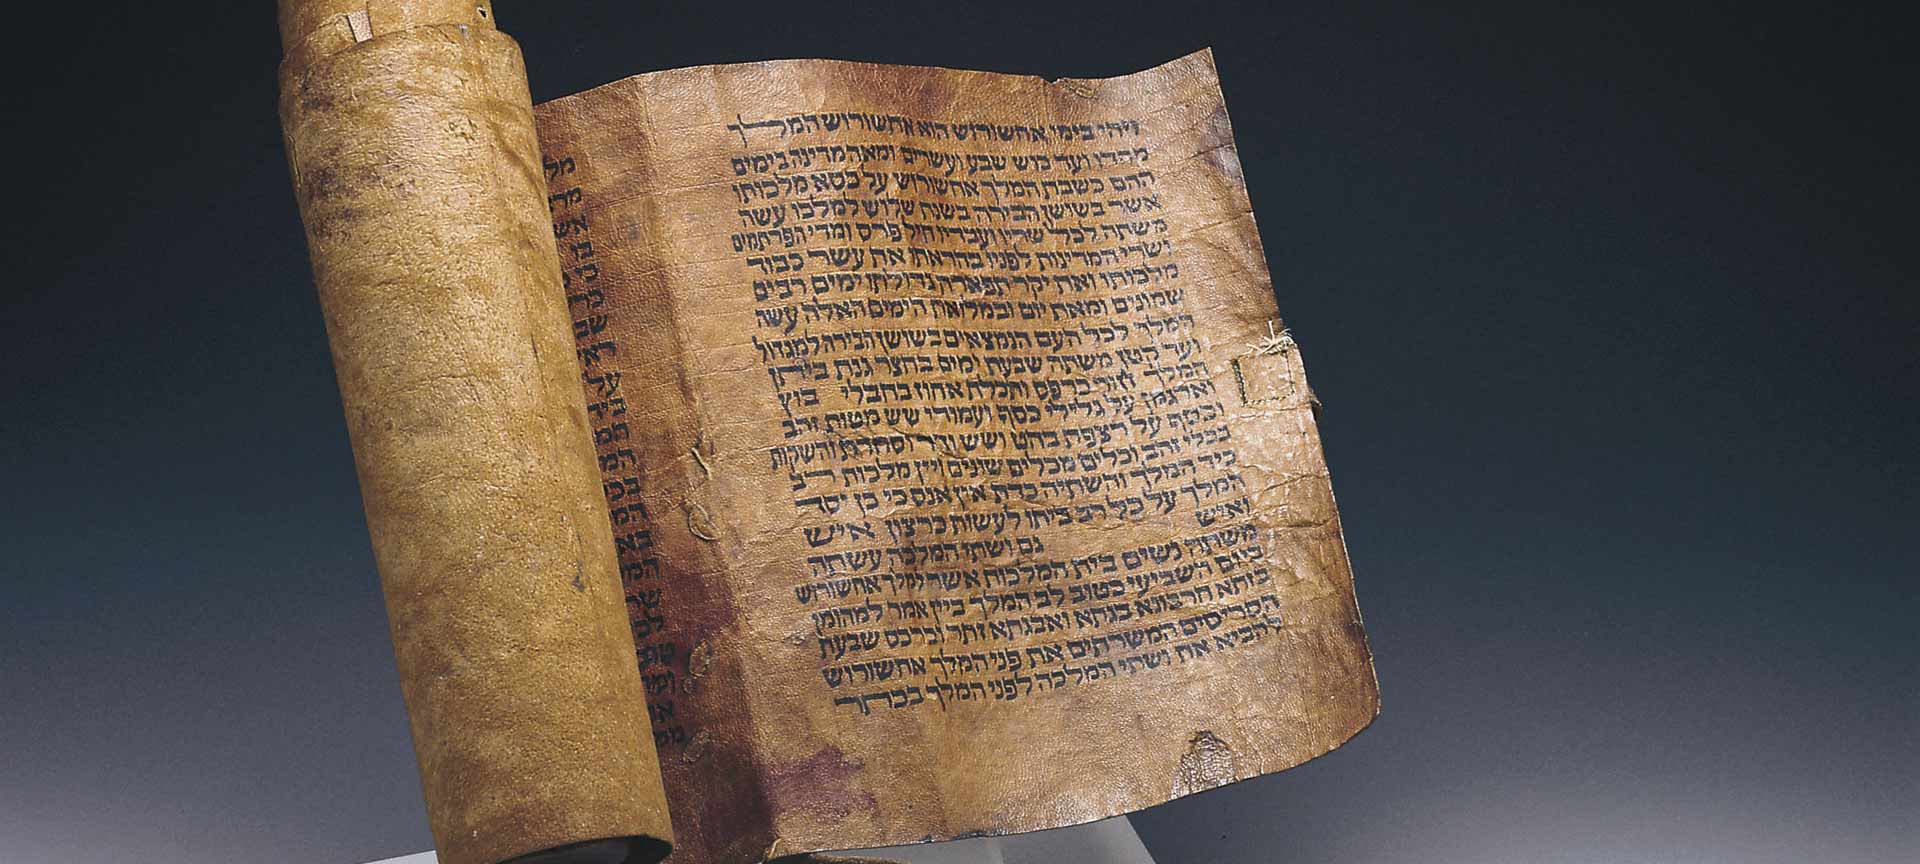 ויהי בימי אחשורוש הוא אחשורוש המלך
מהדו ועד כוש שבע ועשרים ומאה מדינה בימים
ההם כשבת המלך אחשורוש על כסא מלכותו
אשר בשושן הבירה בשנת שלוש למלכו עשה
משתה לכל שריו ועבדיו חיל פרס ומדי הפרתמים
ושרי המדינות לפניו בהראתו את עשר כבוד
מלכותו ואת יקר תפארת גדולתו ימים רבים
שמונים ומאת יום ובמלואת הימים האלה עשה
המלך לכל העם הנמצאים בשושן הבירה למגדול
ועד קטן משתה שבעת ימים בחצר גנת ביתן
המלך חור כרפס ותכלת אחוז בחבלי בוץ
וארגמן על גלילי כסף ועמודי שש מטות זהב
וכסף על רצפת בהט ושש ודר וסחרת והשקות
בכלי זהב וכלים מכלים שונים ויין מלכות רב
כיד המלך והשתיה כדת אין אנס כי כן יסד
המלך על כל רב ביתו לעשות כרצון איש
ואיש
גם ושתי המלכה עשתה
משתה נשים בית המלכות אשר למלך אחשורוש
ביום השביעי כטוב לב המלך ביין אמר למהומן
בזתא חרבונא בגתא ואבגתא זתר וכרכס שבעת
הסריסים המשרתים את פני המלך אחשורוש
להביא את ושתי המלכה לפני המלך בכתר